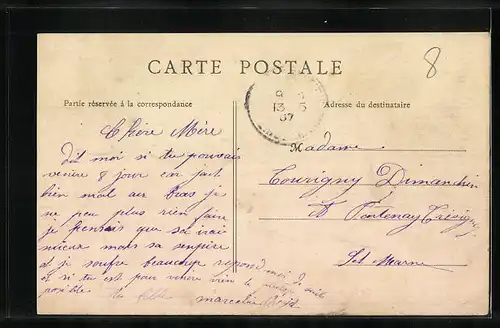 8
CARTE POSTALE
Partie réservée à la correspondance
Adresse du destinataire
13 5
07
Chère Mère
Dit moi si tu pouvais
venire 8 jour car jait
bien mal aux bras je
ne peu plus rien faire
je pensais que sa irai
mieux mais sa empire
et je soufre beaucoup repond moi de suite
et si tu est pour venire vien le
posible ta fille
marceline
Madame
Courigny Dimanchin
A Fontenay Trésigny
Set Marne